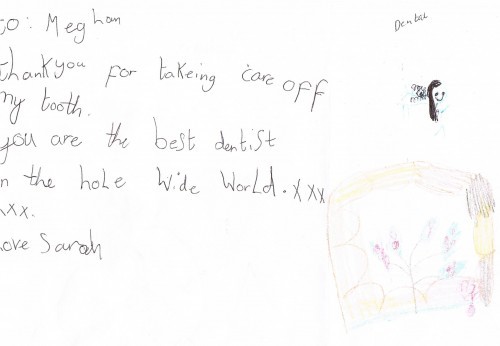 To: Meghan
Thankyou for takeing care off
my tooth.
you are the best dentist
in the hole wide world. xxx
xxx.
Love Sarah
Dental